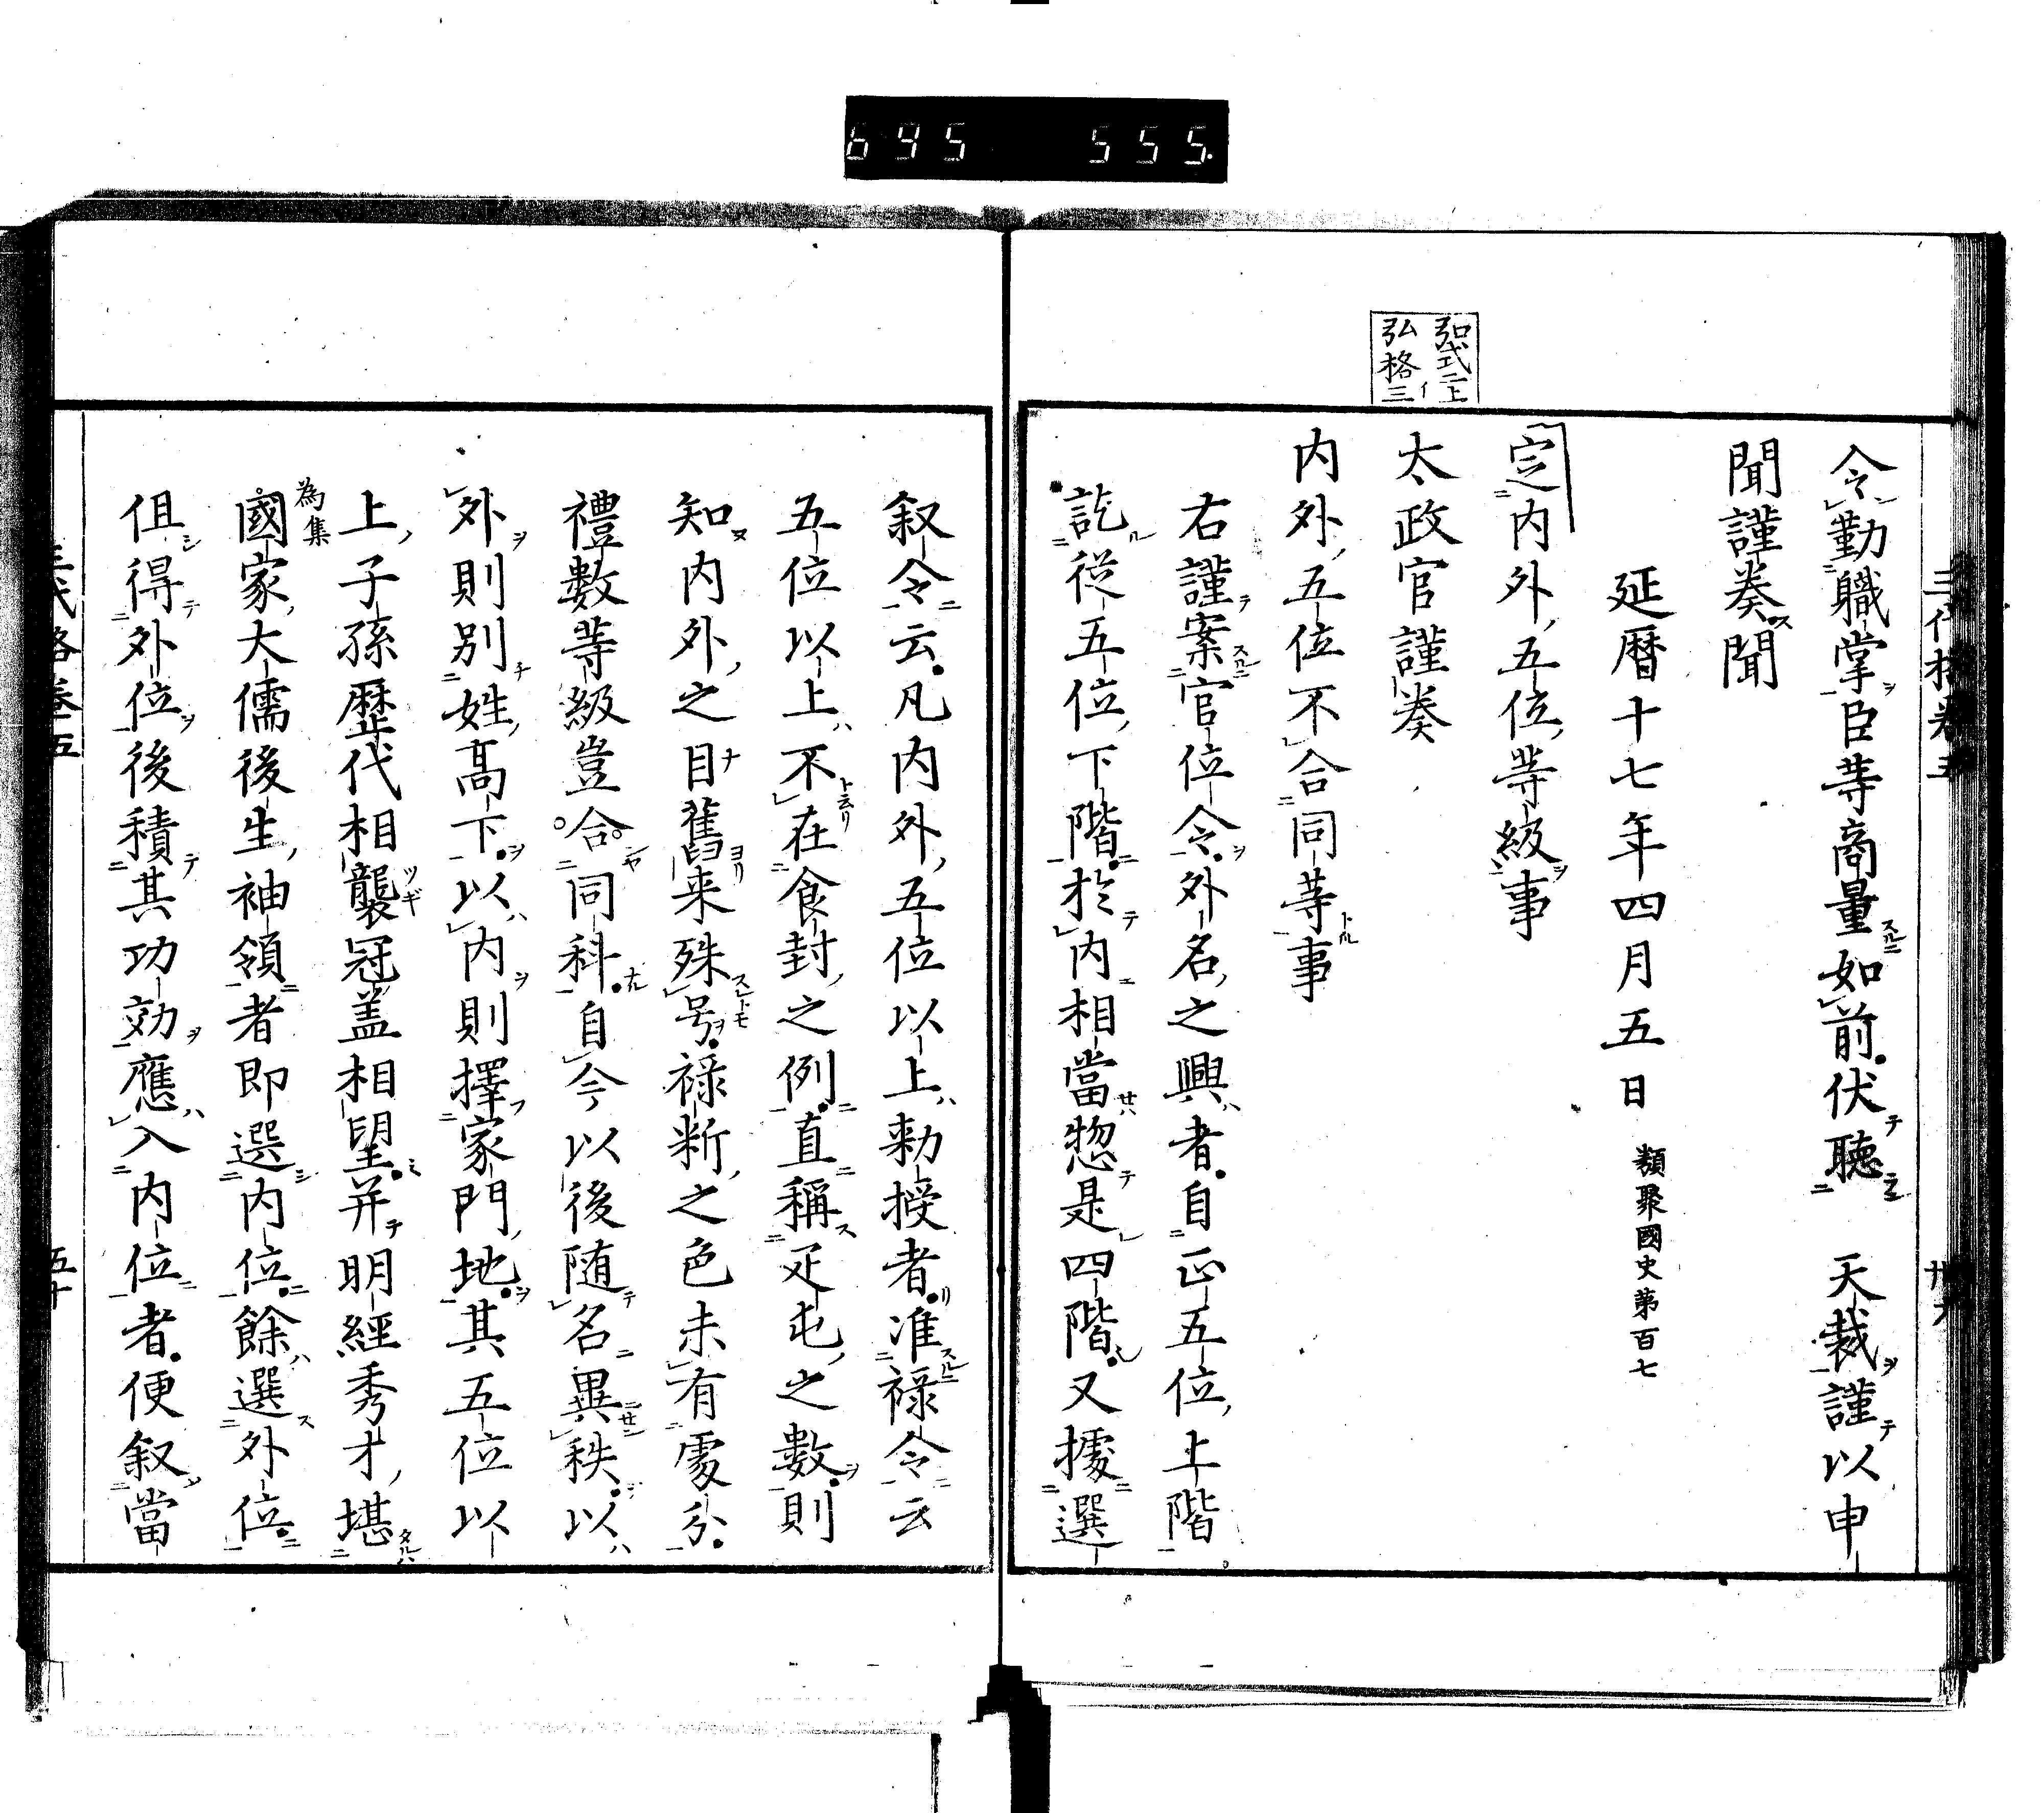 695 555.
弘式二上イ
弘格三
令勤職掌臣等商量如前伏聴 天裁謹以申
聞謹奏聞
延暦十七年四月五日 類聚國史第百七
定内外五位等級事
太政官謹奏
内外五位不合同等事
右謹案官位令外名之興者自正五位上階
訖從五位下階於内相當惣是四階又據選
叙令云凡内外五位以上勅授者准禄令云
五位以上不在食封之例直稱疋屯之數則
知内外之目舊来殊号禄断之色未有處分
禮數等級豈合同科自今以後随名異秩以
外則別姓高下以内則擇家門地其五位以
上子孫歴代相襲冠盖相望并明經秀才堪
為集
國家大儒後生袖領者即選内位餘選外位
但得外位後積其功効應入内位者便叙當